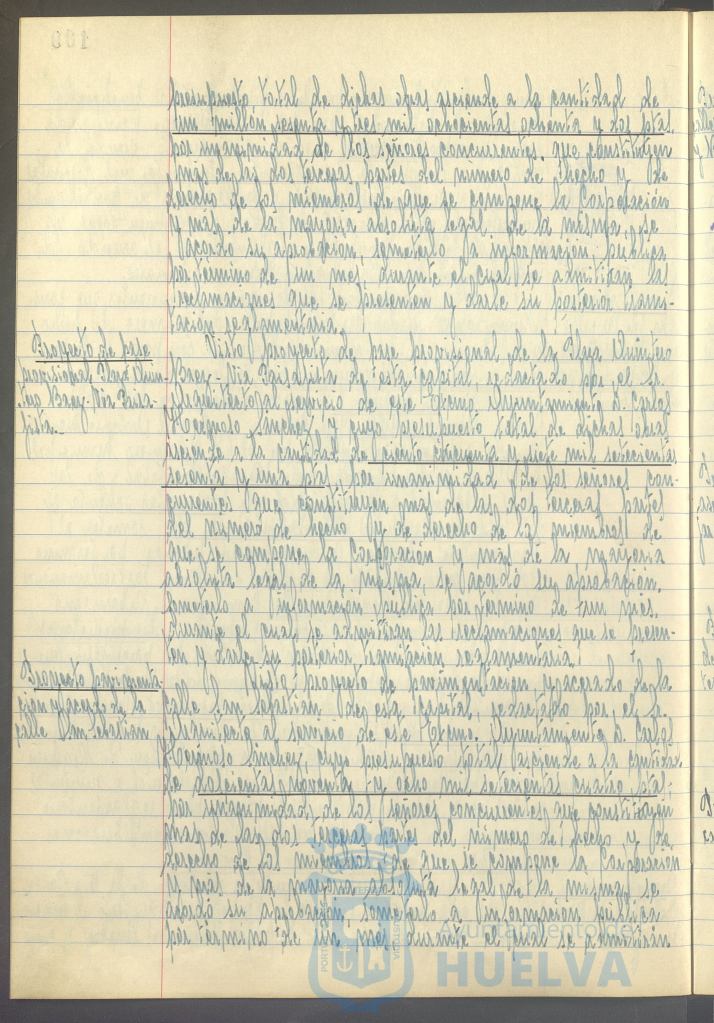 presupuesto total de dichas obras asciende a la cantidad de
un millon sesenta y tres mil ochocientas ochenta y dos ptas.
por unanimidad de los señores concurrentes que constituyen
mas de las dos terceras partes del numero de hecho y de
derecho de los miembros de que se compone la Corporación
y más de la mayoria absoluta legal de la misma, se
acordo su aprobacion, someterlo a informacion publica
por termino de un mes durante el cual se admitiran las
reclamaciones que se presenten y darle su posterior trami-
tación reglamentaria.
Proyecto de pase
provisional Plaza Quin-
tero Baez-Via Paisa-
jista.-
Visto proyecto de pase provisional de la Plaza Quintero
Baez-Via Paisajista de esta capital, redactado por el Sr.
Arquitecto al servicio de este Excmo. Ayuntamiento D. Carlos
Hermoso Sánchez, y cuyo presupuesto total de dichas obras
asciende a la cantidad de ciento cincuenta y siete mil setecientas
sesenta y una ptas, por unanimidad de los señores con-
currentes que constituyen más de las dos terceras partes
del numero de hecho y de derecho de los miembros de
que se compone la Corporación y más de la mayoria
absoluta legal de la misma, se acordó su aprobación,
someterlo a informacion publica por termino de un mes,
durante el cual se admitiran las reclamaciones que se presen-
ten y darle su posterior tramitacion reglamentaria.
Proyecto pavimenta-
cion y acerado de la
calle San Sebastian
Visto proyecto de pavimentacion y acerado de la
calle San Sebastian de esta capital, redactado por el Sr.
Arquitecto al servicio de este Excmo. Ayuntamiento D. Carlos
Hermoso Sánchez, cuyo presupuesto total asciende a la cantidad
de doscientas noventa y ocho mil setecientas cuatro ptas.
por unanimidad de los señores concurrentes que constituyen
mas de las dos terceras partes del número de hecho y de
derecho de los miembros de que se compone la Corporacion
y más de la mayoria absoluta legal de la misma, se
acordó su aprobación, someterlo a informacion publica
por termino de un mes, durante el cual se admitiran
Ayuntamiento de
HUELVA